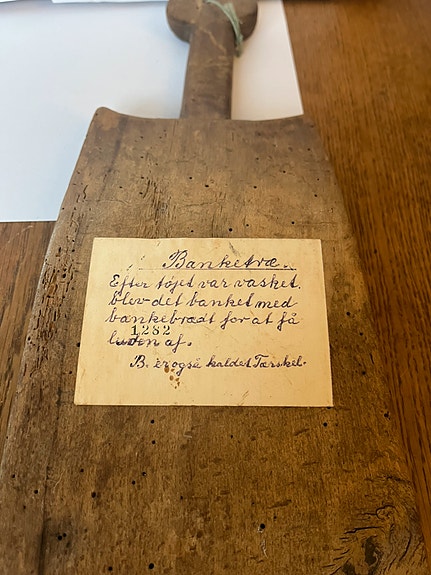 Banketræ.
Efter tøjet var vasket.
blev det banket med
bankebrædt for at få
1282
luden af.
B. er også kaldet Tærskel.